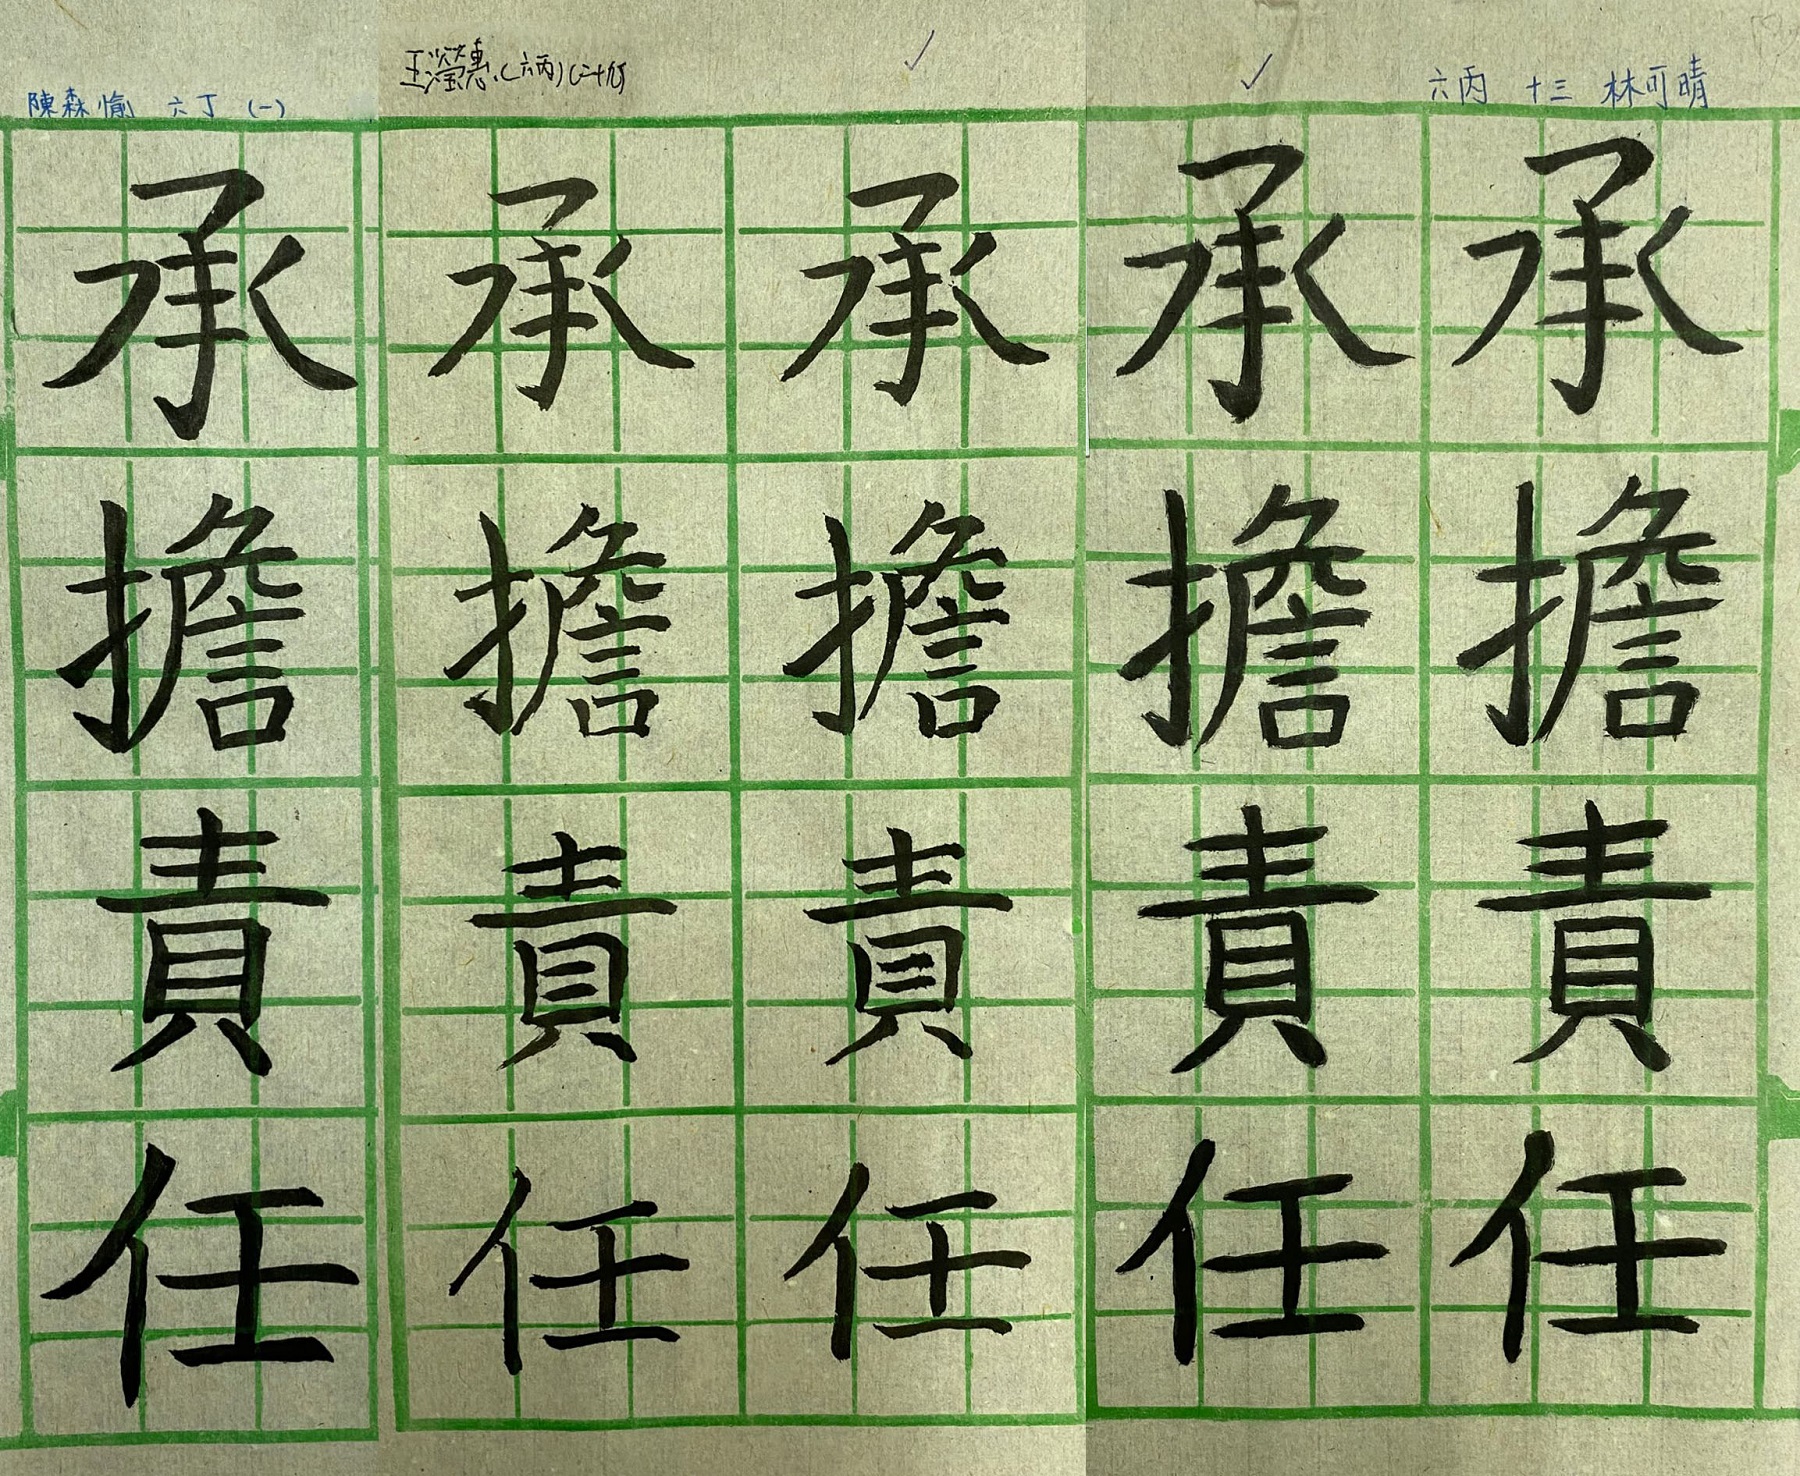 陳森愉 六丁 (一)
王瀅惠 (六丙) (二十九)
六丙 十三 林可晴
承擔責任
承擔責任
承擔責任
承擔責任
承擔責任